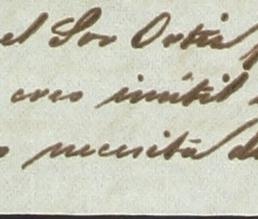 el Sor Ortiz
creo inútil
necesita de